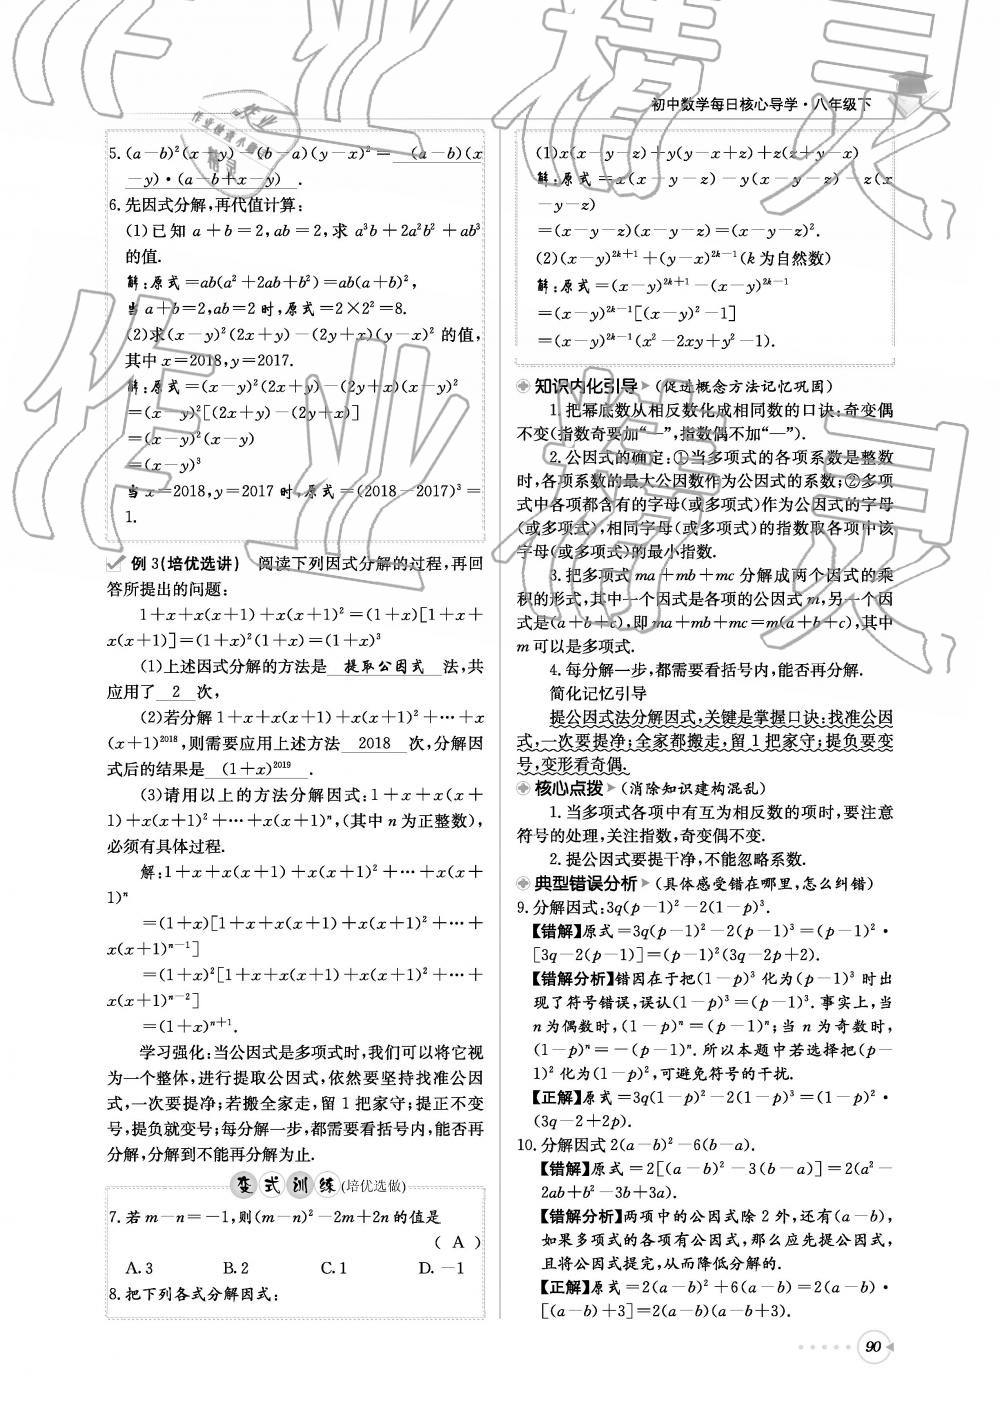 初中数学每日核心导学·八年级下
5.(a-b)²(x-y)-(b-a)(y-x)²= (a-b)(x
-y)·(a-b+x-y) .
6.先因式分解,再代值计算:
(1)已知 a+b=2,ab=2,求 a³b+2a²b²+ab³
的值.
解:原式=ab(a²+2ab+b²)=ab(a+b)²,
当a+b=2,ab=2时,原式=2×2²=8.
(2)求(x-y)²(2x+y)-(2y+x)(y-x)² 的值,
其中x=2018,y=2017.
解:原式=(x-y)²(2x+y)-(2y+x)(x-y)²
=(x-y)²[(2x+y)-(2y+x)]
=(x-y)²(x-y)
=(x-y)³
当x=2018,y=2017时,原式=(2018-2017)³=
1.
例3(培优选讲) 阅读下列因式分解的过程,再回
答所提出的问题:
1+x+x(x+1)+x(x+1)²=(1+x)[1+x+
x(x+1)]=(1+x)²(1+x)=(1+x)³
(1)上述因式分解的方法是 提取公因式 法,共
应用了 2 次,
(2)若分解1+x+x(x+1)+x(x+1)²+…+x
(x+1)²⁰¹⁸,则需要应用上述方法 2018 次,分解因
式后的结果是 (1+x)²⁰¹⁹ .
(3)请用以上的方法分解因式:1+x+x(x+
1)+x(x+1)²+…+x(x+1)ⁿ,(其中n为正整数),
必须有具体过程.
解:1+x+x(x+1)+x(x+1)²+…+x(x+
1)ⁿ
=(1+x)[1+x+x(x+1)+x(x+1)²+…+
x(x+1)ⁿ⁻¹]
=(1+x)²[1+x+x(x+1)+x(x+1)²+…+
x(x+1)ⁿ⁻²]
=(1+x)ⁿ⁺¹.
学习强化:当公因式是多项式时,我们可以将它视
为一个整体,进行提取公因式,依然要坚持找准公因
式,一次要提净;若搬全家走,留1把家守;提正不变
号,提负就变号;每分解一步,都需要看括号内,能否再
分解,分解到不能再分解为止.
变式训练(培优选做)
7.若m-n=-1,则(m-n)²-2m+2n的值是
( A )
A.3 B.2 C.1 D.-1
8.把下列各式分解因式:
(1)x(x-y-z)+y(y-x+z)+z(z+y-x)
解:原式=x(x-y-z)-y(x-y-z)-z(x
-y-z)
=(x-y-z)(x-y-z)=(x-y-z)².
(2)(x-y)²ᵏ⁺¹+(y-x)²ᵏ⁻¹(k为自然数)
解:原式=(x-y)²ᵏ⁺¹-(x-y)²ᵏ⁻¹
=(x-y)²ᵏ⁻¹[(x-y)²-1]
=(x-y)²ᵏ⁻¹(x²-2xy+y²-1).
知识内化引导 (促进概念方法记忆巩固)
1.把幂底数从相反数化成相同数的口诀:奇变偶
不变(指数奇要加“-”,指数偶不加“-”).
2.公因式的确定:①当多项式的各项系数是整数
时,各项系数的最大公因数作为公因式的系数;②多项
式中各项都含有的字母(或多项式)作为公因式的字母
(或多项式),相同字母(或多项式)的指数取各项中该
字母(或多项式)的最小指数.
3.把多项式ma+mb+mc分解成两个因式的乘
积的形式,其中一个因式是各项的公因式m,另一个因
式是(a+b+c),即ma+mb+mc=m(a+b+c),其中
m可以是多项式.
4.每分解一步,都需要看括号内,能否再分解.
简化记忆引导
提公因式法分解因式,关键是掌握口诀:找准公因
式,一次要提净;全家都搬走,留1把家守;提负要变
号,变形看奇偶.
核心点拨 (消除知识建构混乱)
1.当多项式各项中有互为相反数的项时,要注意
符号的处理,关注指数,奇变偶不变.
2.提公因式要提干净,不能忽略系数.
典型错误分析 (具体感受错在哪里,怎么纠错)
9.分解因式:3q(p-1)²-2(1-p)³.
【错解】原式=3q(p-1)²-2(p-1)³=(p-1)²·
[3q-2(p-1)]=(p-1)²(3q-2p+2).
【错解分析】错因在于把(1-p)³化为(p-1)³时出
现了符号错误,误认(1-p)³=(p-1)³.事实上,当
n为偶数时,(1-p)ⁿ=(p-1)ⁿ;当n为奇数时,
(1-p)ⁿ=-(p-1)ⁿ.所以本题中若选择把(p-
1)²化为(1-p)²,可避免符号的干扰.
【正解】原式=3q(1-p)²-2(1-p)³=(1-p)²·
(3q-2+2p).
10.分解因式2(a-b)²-6(b-a).
【错解】原式=2[(a-b)²-3(b-a)]=2(a²-
2ab+b²-3b+3a).
【错解分析】两项中的公因式除2外,还有(a-b),
如果多项式的各项有公因式,那么应先提公因式,
且将公因式提完,从而降低分解的.
【正解】原式=2(a-b)²+6(a-b)=2(a-b)·
[(a-b)+3]=2(a-b)(a-b+3).
90
作业精灵
作业精灵
作业
作业检查小帮手
精灵